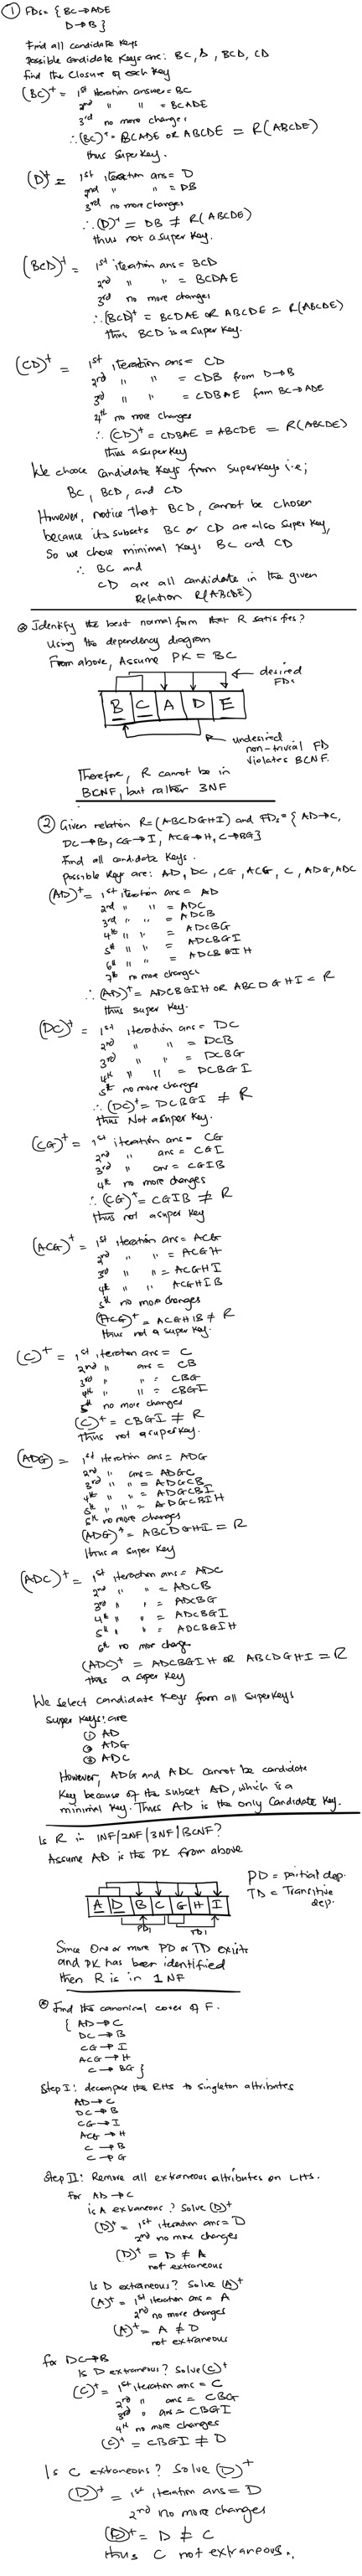 ① FDs = { BC → ADE
D → B }
Find all candidate keys
Possible candidate keys are: BC, D, BCD, CD
find the closure of each key
(BC)+ = 1st iteration answer = BC
2nd " " = BCADE
3rd no more changes
∴ (BC)+ = BCADE OR ABCDE = R(ABCDE)
thus super key.
(D)+ = 1st iteration ans = D
2nd " " = DB
3rd no more changes
∴ (D)+ = DB ≠ R(ABCDE)
thus not a super key.
(BCD)+ = 1st iteration ans = BCD
2nd " " = BCDAE
3rd no more changes
∴ (BCD)+ = BCDAE OR ABCDE = R(ABCDE)
thus BCD is a super key.
(CD)+ = 1st iteration ans = CD
2nd " " = CDB from D → B
3rd " " = CDBAE from BC → ADE
4th no more changes
∴ (CD)+ = CDBAE = ABCDE = R(ABCDE)
thus a super key
We choose candidate keys from superkeys i.e;
BC, BCD, and CD
However, notice that BCD, cannot be chosen
because its subsets BC or CD are also super key,
So we chose minimal keys BC and CD
∴ BC and
CD are all candidate in the given
Relation R(ABCDE)
Identify the best normal form that R satisfies?
Using the dependency diagram
From above, Assume PK = BC
desired
FDs
B C A D E
undesired
non-trivial FD
violates BCNF.
Therefore, R cannot be in
BCNF, but rather 3NF
② Given relation R = (ABCDGHI) and FDs = { AD → C,
DC → B, CG → I, ACG → H, C → BG }
Find all candidate keys.
possible keys are: AD, DC, CG, ACG, C, ADG, ADC
(AD)+ = 1st iteration ans = AD
2nd " " = ADC
3rd " " = ADCB
4th " " = ADCBG
5th " " = ADCBGI
6th " " = ADCBGIH
7th no more changes
∴ (AD)+ = ADCBGIH OR ABCDGHI = R
thus super key.
(DC)+ = 1st iteration ans = DC
2nd " " = DCB
3rd " " = DCBG
4th " " = DCBGI
5th no more changes
∴ (DC)+ = DCBGI ≠ R
thus Not a super key.
(CG)+ = 1st iteration ans = CG
2nd " ans = CGI
3rd " ans = CGIB
4th no more changes
∴ (CG)+ = CGIB ≠ R
thus not a super key
(ACG)+ = 1st iteration ans = ACG
2nd " " = ACGH
3rd " " = ACGHI
4th " " ACGHIB
5th no more changes
(ACG)+ = ACGHIB ≠ R
thus not a super key.
(C)+ = 1st iteration ans = C
2nd " ans = CB
3rd " " = CBG
4th " " = CBGI
5th no more changes
(C)+ = CBGI ≠ R
thus not a super key.
(ADG) = 1st iteration ans = ADG
2nd " ans = ADGC
3rd " " = ADGCB
4th " " = ADGCBI
5th " " = ADGCBIH
6th no more changes
(ADG)+ = ABCDGHI = R
thus a super key
(ADC)+ = 1st iteration ans = ADC
2nd " " = ADCB
3rd " " = ADCBG
4th " " = ADCBGI
5th " " = ADCBGIH
6th no more change
(ADC)+ = ADCBGIH OR ABCDGHI = R
thus a super key
We select candidate keys from all superkeys
super keys are
① AD
② ADG
③ ADC
However, ADG and ADC cannot be candidate
key because of the subset AD, which is a
minimal key. Thus AD is the only candidate key.
Is R in 1NF/2NF/3NF/BCNF?
Assume AD is the PK from above
PD = partial dep.
TD = Transitive
dep.
A D B C G H I
PD1 TD1
Since One or more PD or TD exists
and PK has been identified
then R is in 1NF
Find the canonical cover of F.
{ AD → C
DC → B
CG → I
ACG → H
C → BG }
Step I: decompose the RHS to singleton attributes
AD → C
DC → B
CG → I
ACG → H
C → B
C → G
Step II: Remove all extraneous attributes on LHS.
For AD → C
is A extraneous? Solve (D)+
(D)+ = 1st iteration ans = D
2nd no more changes
(D)+ = D ≠ A
not extraneous
Is D extraneous? Solve (A)+
(A)+ = 1st iteration ans = A
2nd no more changes
(A)+ = A ≠ D
not extraneous
for DC → B
Is D extraneous? Solve (C)+
(C)+ = 1st iteration ans = C
2nd " ans = CBG
3rd " ans = CBGI
4th no more changes
(C)+ = CBGI ≠ D
Is C extraneous? Solve (D)+
(D)+ = 1st iteration ans = D
2nd no more changes
(D)+ = D ≠ C
thus C not extraneous.